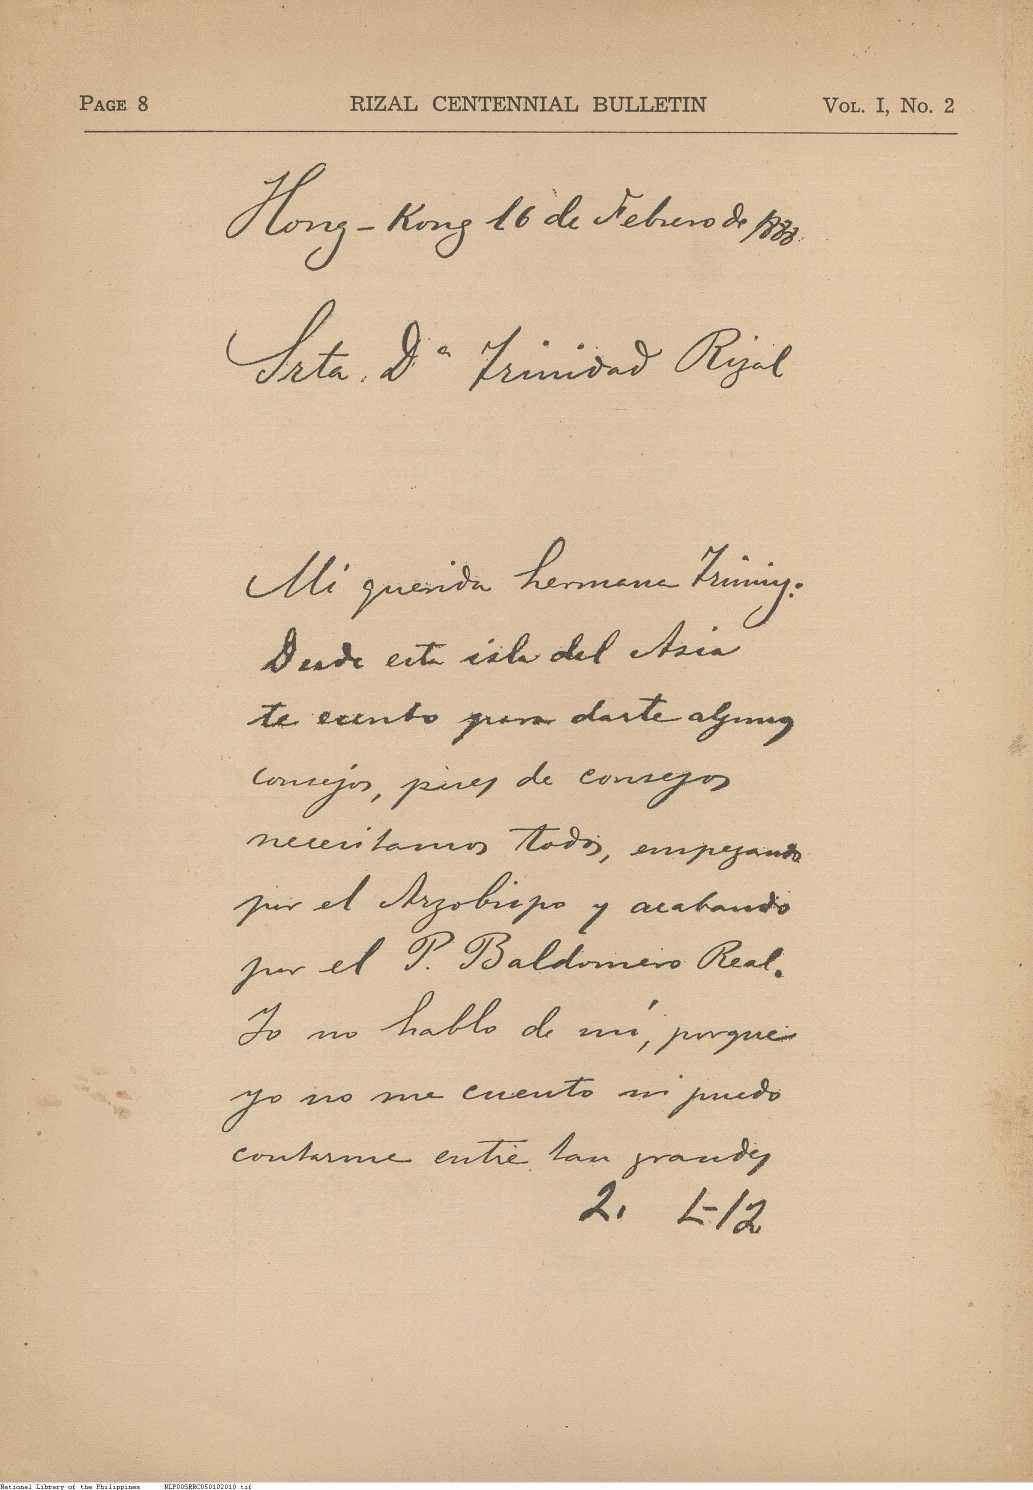 PAGE 8 RIZAL CENTENNIAL BULLETIN VOL. I, No. 2
Hong-Kong 16 de Febrero de 1888.
Srta. Dª Trinidad Rizal
Mi querida hermana Triniy:
Desde esta isla del Asia
te escribo para darte algunos
consejos, pues de consejos
necesitamos todos, empezando
por el Arzobispo y acabando
por el P. Baldomero Real.
Yo no hablo de mí, porque
yo no me cuento ni puedo
contarme entre tan grandes
2. L-12
National Library of the Philippines NLP00SRRC050102010.tif